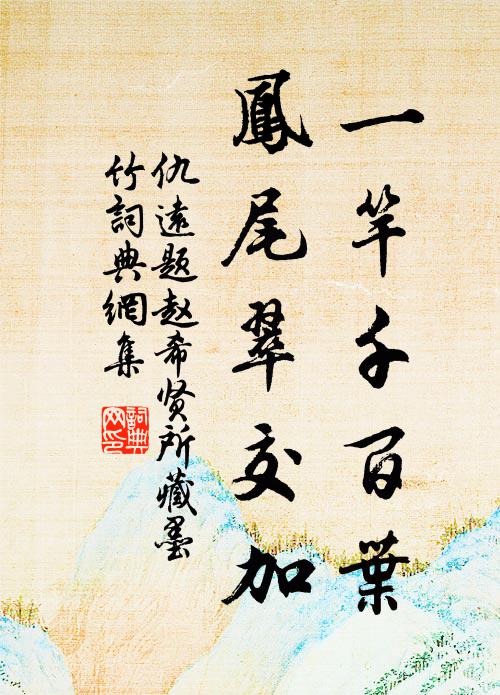 一竿千百葉
鳳尾翠交加
仇遠題赵希贤所藏墨
竹詞典網集
詞典网印